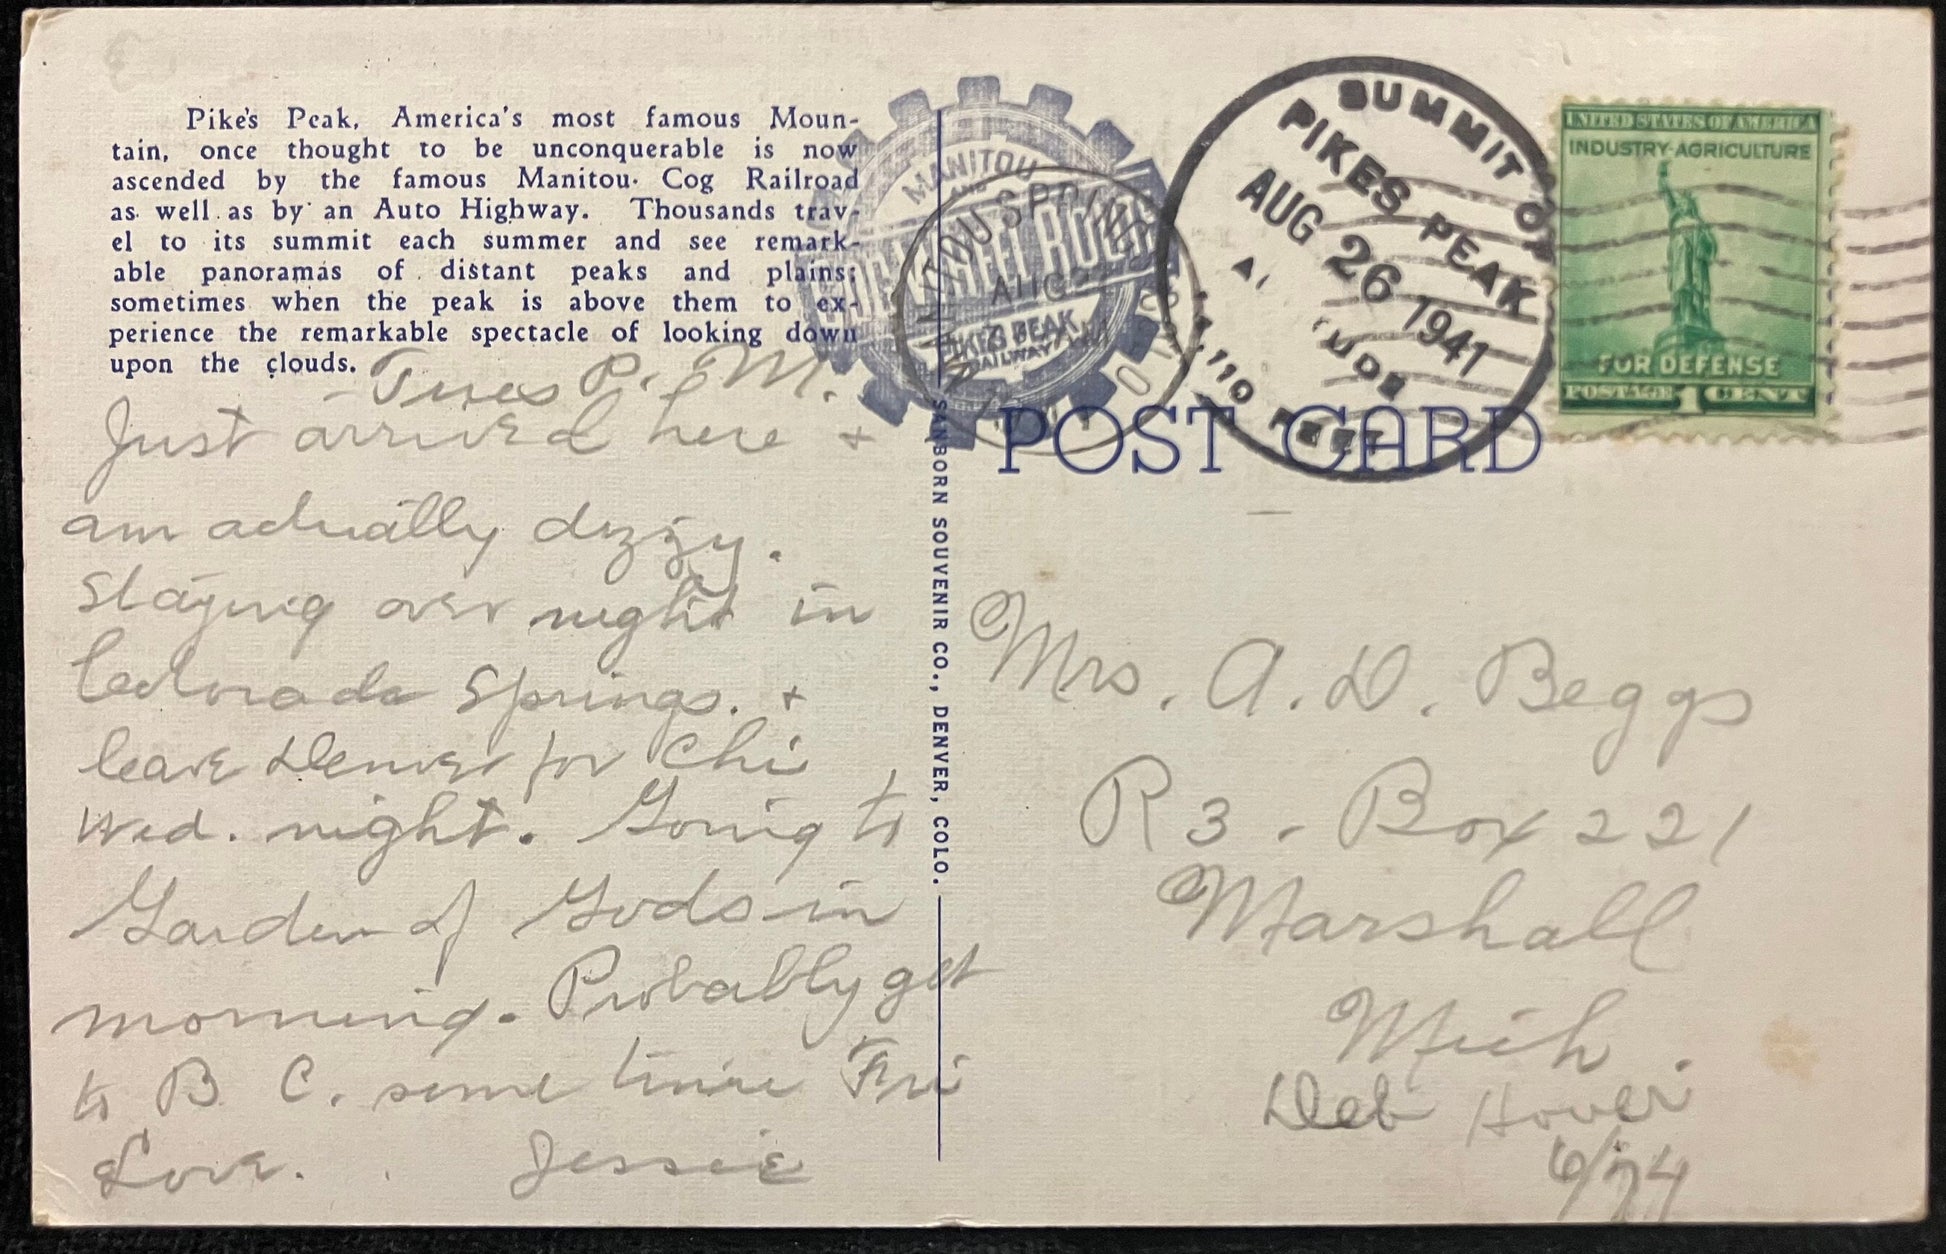 Pike's Peak, America's most famous Moun-
tain, once thought to be unconquerable is now
ascended by the famous Manitou Cog Railroad
as well as by an Auto Highway. Thousands trav-
el to its summit each summer and see remark-
able panoramas of distant peaks and plains;
sometimes when the peak is above them to ex-
perience the remarkable spectacle of looking down
upon the clouds.
Tues P. M.
Just arrived here +
am actually dizzy.
Staying over night in
Colorado Springs. +
leave Denver for Chi
Wed. night. Going to
Garden of Gods in
morning. Probably get
to B. C. some time Fri
Love. Jessie
MANITOU
AND
PIKES PEAK
RAILWAY
MANITOU SPRINGS
AUG
SANBORN SOUVENIR CO., DENVER, COLO.
POST CARD
SUMMIT OF
PIKES PEAK
AUG 26 1941
110 FEET
UNITED STATES OF AMERICA
INDUSTRY-AGRICULTURE
FOR DEFENSE
POSTAGE 1 CENT
Mrs. A. D. Beggs
R 3 - Box 221
Marshall
Mich.
Deb Hover
6/74